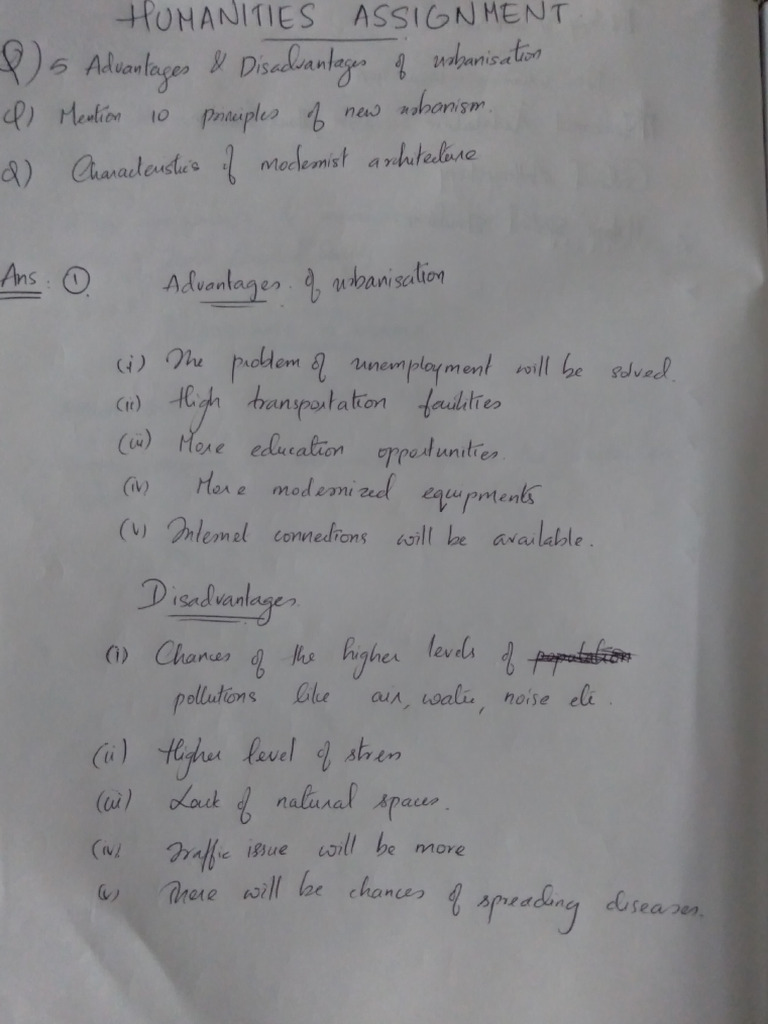 HUMANITIES ASSIGNMENT
Q) 5 Advantages & Disadvantages of urbanisation
Q) Mention 10 principles of new urbanism.
Q) Characteristics of modernist architecture
Ans: ① Advantages of urbanisation
(i) The problem of unemployment will be solved.
(ii) High transportation facilities
(iii) More education opportunities.
(iv) More modernized equipments
(v) Internet connections will be available.
Disadvantages
(i) Chances of the higher levels of population
pollutions like air, water, noise etc.
(ii) Higher level of stress
(iii) Lack of natural spaces.
(iv) Traffic issue will be more
(v) There will be chances of spreading diseases.